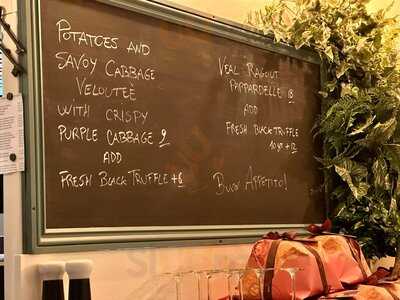 POTATOES AND
SAVOY CABBAGE
VELOUTEÈ
WITH CRISPY
PURPLE CABBAGE 9
ADD
FRESH BLACK TRUFFLE +6
VEAL RAGOUT
PAPPARDELLE 18
ADD
FRESH BLACK TRUFFLE
+12
BUON APPETITO!